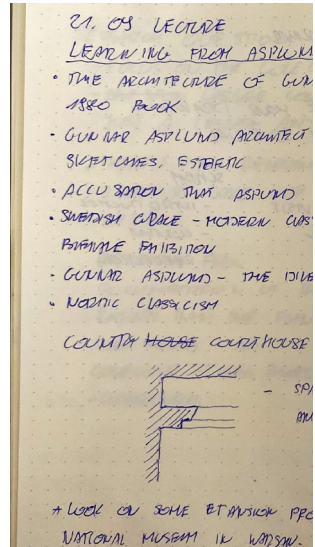 21. 09 LECTURE
LEARNING FROM ASPLUN
• THE ARCHITECTURE OF GUN
1980 BOOK
- GUNNAR ASPLUND ARCHITECT
SKETCHES, ESTETIC
• ACCUSATION THAT ASPUND
• SWEDISH GRACE - MODERN CLAS
EXIBITION
- GUNNAR ASPLUND - THE DILE
• NORDIC CLASSICISM
COUNTRY HOUSE COURTHOUSE
- SPA
+ LOOK ON SOME ETANSION PRO
NATIONAL MUSEUM IN WARSAW.